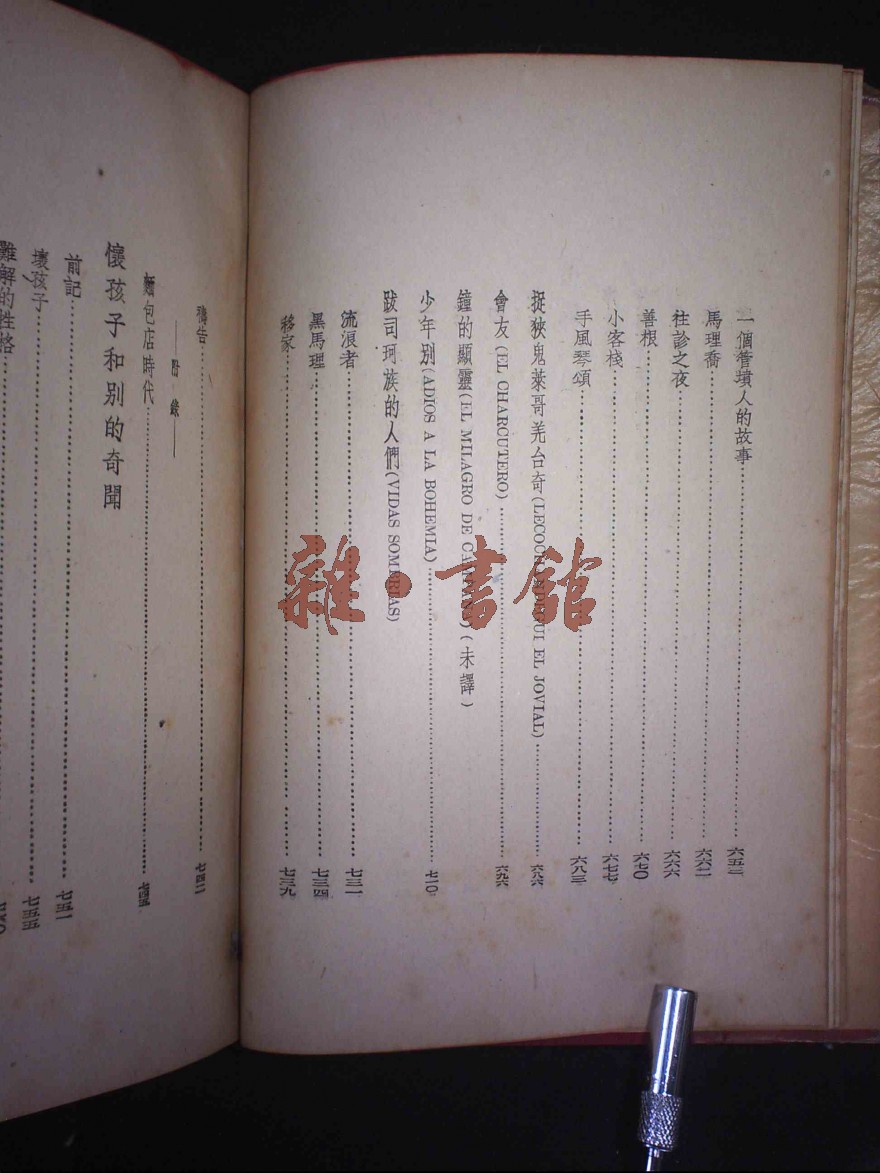 一個管墳人的故事……六五三
馬理喬……六六二
往診之夜……六六六
善根……六七〇
小客棧……六七七
手風琴頌……六八三
捉狹鬼萊哥羌台奇(LECOCHANDEGUI EL JOVIAL)……六八六
會友(EL CHARCUTERO)……六九六
鐘的顯靈(EL MILAGRO DE (未譯)
少年别(ADIOS A LA BOHEMIA)……七一〇
跋司珂族的人們(VIDAS SOMBRIAS)
流浪者……七三一
黑馬理……七三四
移家……七三九
禱告……七四二
——附錄——
麵包店時代……七四五
懷孩子和别的奇聞
前記……七五一
壞孩子……七五五
難解的性格
雜·書館